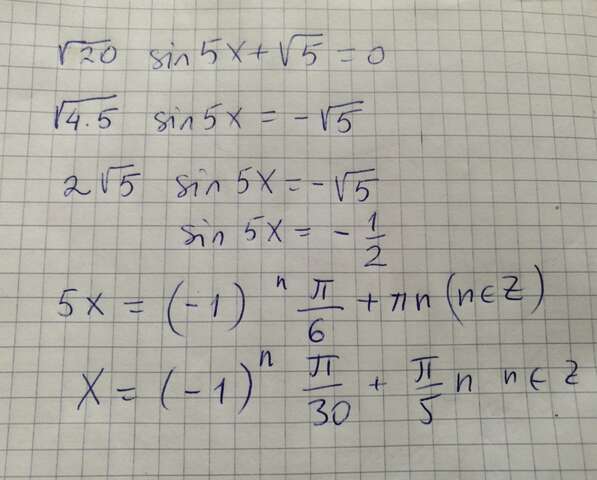 √20 sin 5x + √5 = 0
√4·5 sin 5x = -√5
2√5 sin 5x = -√5
sin 5x = - 1/2
5x = (-1)^n π/6 + πn (n∈Z)
x = (-1)^n π/30 + π/5 n n∈Z